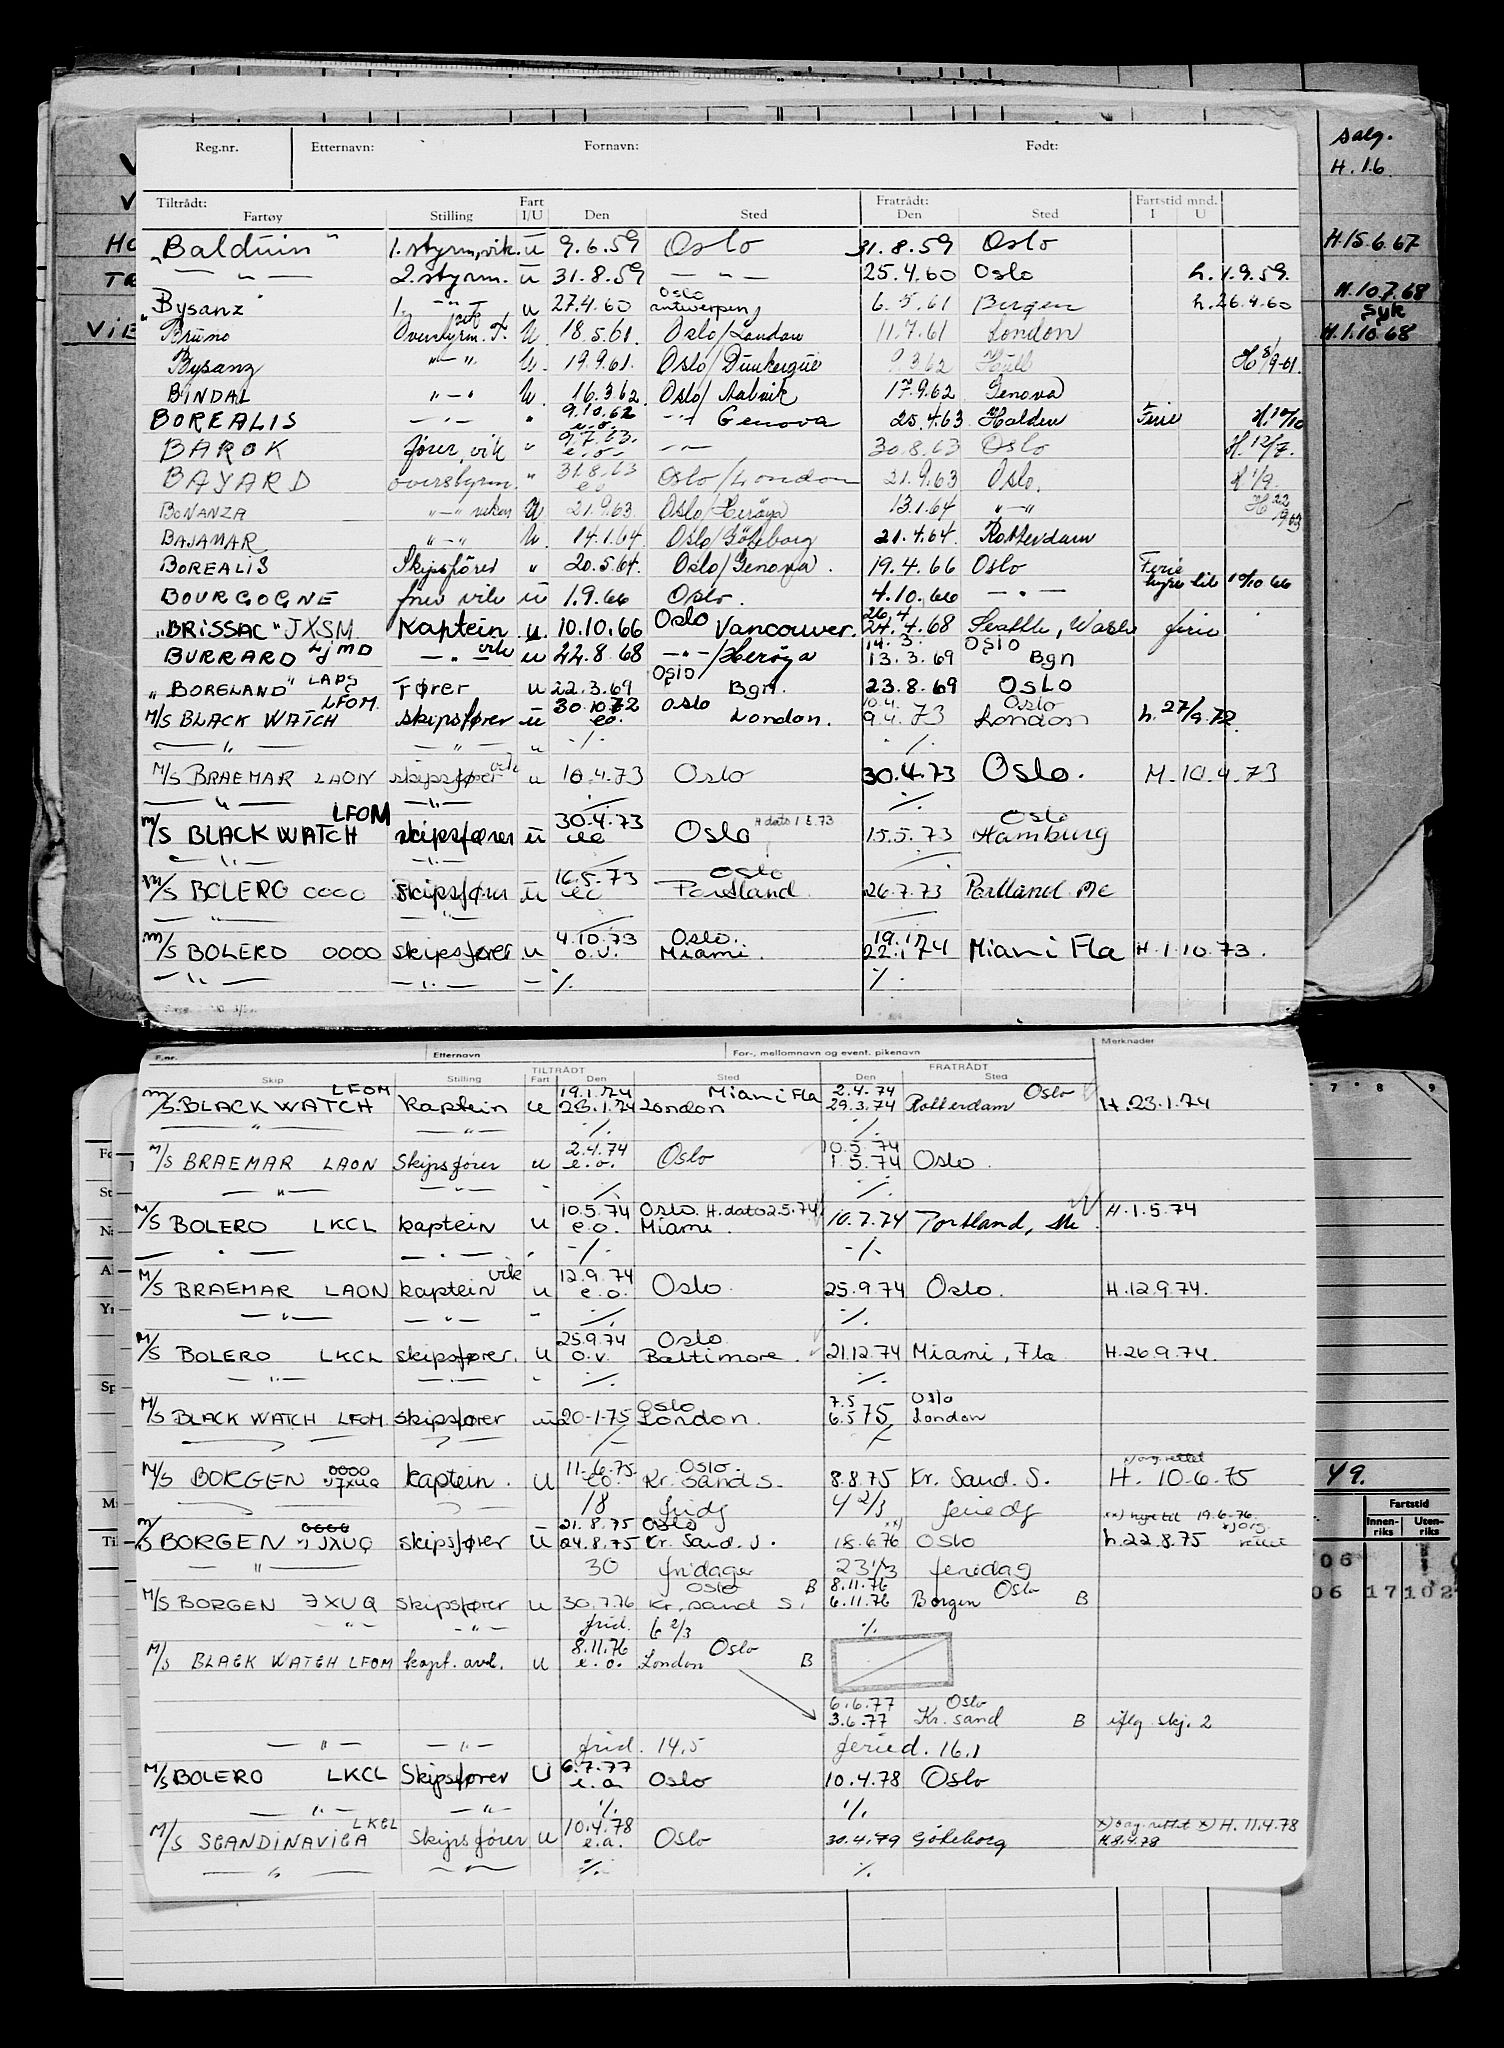 salg.
H. 1.6
H. 15.6.67
H. 10.7.68
Syk
H. 1.10.68
Reg.nr. Etternavn: Fornavn: Født:
Tiltrådt: Fart Fratrådt: Fartstid mnd.
Fartøy Stilling I/U Den Sted Den Sted I U
"Balduin" 1. styrm, vik. u 9.6.59 Oslo 31.8.59 Oslo
— " — 2. styrm. u 31.8.59 — " — 25.4.60 Oslo h. 1.9.59.
Oslo
"Bysanz" 1. — " — u 27.4.60 antwerpen 6.5.61 Bergen h. 26.4.60
Bruno Overstyrm. vik U. 18.5.61. Oslo/London 11.7.61 London
Bysanz " — " U. 19.9.61. Oslo/Dunkerque 9.3.62 Hull H 8/9-61.
BINDAL " — " U. 16.3.62. Oslo/Aalvik 17.9.62 Genova
9.10.62
BOREALIS — " — " e.o. — " — Genova 25.4.63 Halden Ferie H. 10/10
9.7.63.
BAROK fører, vik " e.o. — " — 30.8.63 Oslo H. 12/7.
31.8.63
BAYARD overstyrm. " eo Oslo/London 21.9.63 Oslo. H 1/9.
BONANZA " — " vikar U 21.9.63. Oslo/Herøya 13.1.64 " — " H 22/9 63
BAJAMAR " — " U. 14.1.64. Oslo/Göteborg 21.4.64. Rotterdam
BOREALIS Skipsfører " 20.5.64. Oslo/Genova. 19.4.66 Oslo Ferie
BOURGOGNE fører vik u 1.9.66 Oslo. 4.10.66 — " — hyre til 10/10 66
26.4
"BRISSAC" JXSM Kaptein u. 10.10.66 Oslo Vancouver. 24.4.68 Seattle, Wash ferie
14.3. Oslo
BURRARD LJMD — " — vik u 22.8.68 — " — /Herøya 13.3.69 Bgn
Oslo
"BORGLAND" LAPS Fører u 22.3.69 Bgn. 23.8.69 Oslo
LFOM. 30.10.72 Oslo 10.4. Oslo
M/S BLACK WATCH skipsfører u eo. London. 9.4.73 London h. 27/9.72
— " — — " — " -/. ./.
M/S BRAEMAR LAON skipsfører vik u 10.4.73 Oslo 30.4.73 Oslo. H. 10.4.73
— " — — " — ./. ./.
LFOM 30.4.73 H dato 1.5.73 Oslo
M/S BLACK WATCH skipsfører u eo Oslo 15.5.73 Hamburg
— " — — " —
16.5.73 Oslo
M/S BOLERO OOOO Skipsfører u eo Portland 26.7.73 Portland Me
— " — — " —
4.10.73 Oslo. 19.1.74
M/S BOLERO OOOO skipsfører u o.v. Miami. 22.1.74 Miami Fla H. 1.10.73.
— " — — " — — ./. ./.
F.nr. Etternavn For-, mellomnavn og event. pikenavn Merknader
TILTRÅDT FRATRÅDT
Skip Stilling Fart Den Sted Den Sted
LFOM 19.1.74 Miami Fla 2.4.74 Oslo
M/S BLACK WATCH kaptein u 23.1.74 London 29.3.74 Rotterdam H. 23.1.74
— " — — " — ./. ./.
2.4.74 10.5.74
M/S BRAEMAR LAON Skipsfører u e.o. Oslo 1.5.74 Oslo.
— " — — " — - ./. ./.
10.5.74 Oslo. H. dato 2.5.74
M/S BOLERO LKCL kaptein u e.o. Miami. 10.7.74 Portland, Me H. 1.5.74
— " — — " — -/. -/.
12.9.74
M/S BRAEMAR LAON kaptein vik u e.o. Oslo. 25.9.74 Oslo. H. 12.9.74.
— " — — " — - ./. ./.
25.9.74 Oslo
M/S BOLERO LKCL skipsfører. u o.v. Baltimore. 21.12.74 Miami, Fla H. 26.9.74.
— " — — " — - ./. ./.
Oslo 7.5 Oslo
M/S BLACK WATCH LFOM. skipsfører u 20-1-75 London. 6.5 75 London
OOOO 11.6.75 Oslo. x) org. rettet
M/S BORGEN x) JXUQ kaptein. u eo. Kr. Sand S. 8.8.75 Kr. Sand. S. H. 10.6.75
18 fridg 4 2/3 feriedg
OOOO 21.8.75 Oslo xx) xx) hyre til 19.6-76
M/S BORGEN x) JXUQ skipsfører u 24.8.75 Kr. Sand. S. 18.6.76 Oslo h. 22.8.75 x) org. rettet
— " — 30 fridager 23 1/3 feriedag
Oslo B 8.11.76 Oslo
M/S BORGEN JXUQ skipsfører u 30.7.76 Kr. sand S. 6.11.76 Borgen B
— " — — " — frid. 6 2/3 ./.
8.11.76 Oslo
M/S BLACK WATCH LFOM kapt. avl. u e.o. London B
6.6.77 Oslo
3.6.77 Kr. sand B iflg skj. 2
— " — — " — frid. 14,5 feried. 16,1
6.7.77
M/S BOLERO LKCL Skipsfører U e.o. Oslo 10.4.78 Oslo
— " — — " — ./. ./.
LKCL 10.4.78 x) org. rettet x) H. 11.4.78
M/S SCANDINAVICA Skipsfører u e.o. Oslo 30.4.79 Göteborg H. 8.4.78
— " — — " — ./. ./.
7 8 9
49.
Fartstid
Innen-riks Uten-riks
06
06 17 102